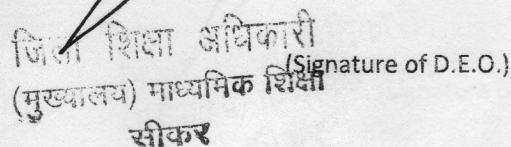 जिला शिक्षा अधिकारी
(Signature of D.E.O.)
(मुख्यालय) माध्यमिक शिक्षा
सीकर